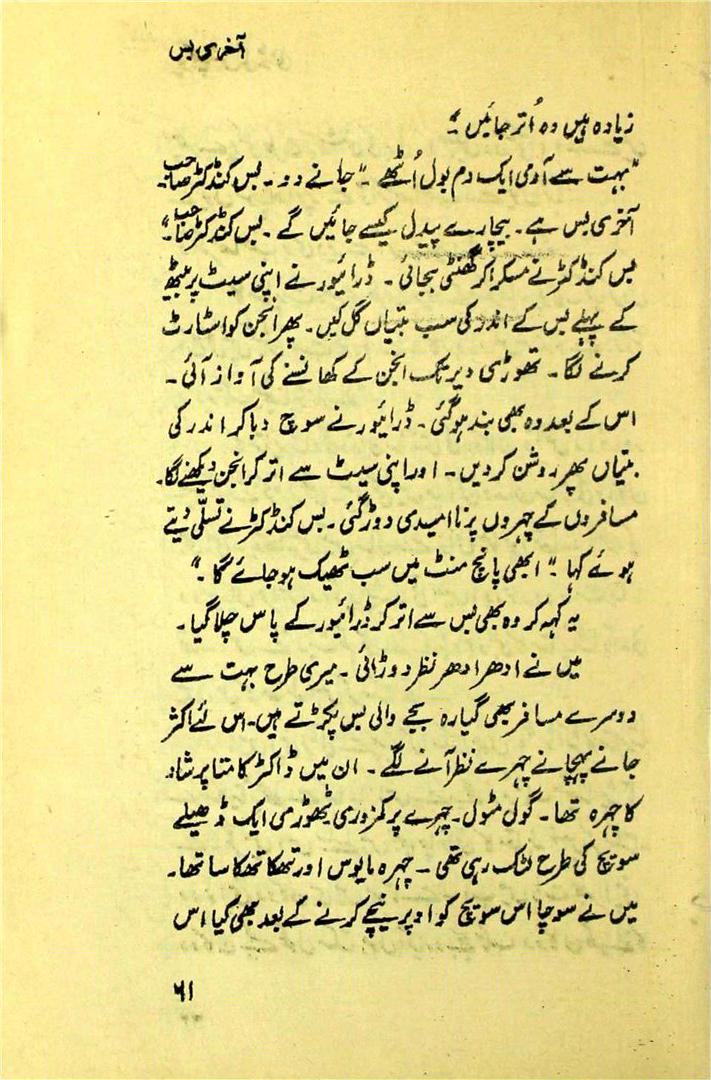 آخری بس
زیادہ ہیں وہ اُتر جائیں۔"
"بہت سے آدمی ایک دم بول اُٹھے ۔" جانے دو ۔ بس کنڈکٹر صاحب۔
آخری بس ہے۔ بیچارے پیدل کیسے جائیں گے ۔ بس کنڈکٹر صاحب"
بس کنڈکٹر نے مسکرا کر گھنٹی بجائی ۔ ڈرائیور نے اپنی سیٹ پر بیٹھ
کے پہلے بس کے اندر کی سب بتیاں گل کیں۔ پھر انجن کو اسٹارٹ
کرنے لگا۔ تھوڑی دیر تک انجن کے کھانسنے کی آواز آئی ۔
اس کے بعد وہ بھی بند ہو گئی ۔ ڈرائیور نے سوچ دبا کر اندر کی
بتیاں پھر روشن کر دیں ۔ اور اپنی سیٹ سے اتر کر انجن دیکھنے لگا۔
مسافروں کے چہروں پر نا امیدی دوڑ گئی ۔ بس کنڈکٹر نے تسلّی دیتے
ہوئے کہا ۔" ابھی پانچ منٹ میں سب ٹھیک ہو جائے گا ۔"
یہ کہہ کر وہ بھی بس سے اتر کر ڈرائیور کے پاس چلا گیا ۔
میں نے ادھر ادھر نظر دوڑائی ۔ میری طرح بہت سے
دوسرے مسافر بھی گیارہ بجے والی بس پکڑتے ہیں۔ اس لئے اکثر
جانے پہچانے چہرے نظر آنے لگے ۔ ان میں ڈاکٹر کامتا پرشاد
کا چہرہ تھا۔ گول مٹول۔ چہرے پر کمزوری ٹھوڑی ایک ڈھیلے
سوئچ کی طرح لٹک رہی تھی ۔ چہرہ مایوس اور تھکا تھکا سا تھا۔
میں نے سوچا اس سوئچ کو اوپر نیچے کرنے کے بعد بھی کیا اس
۶۱